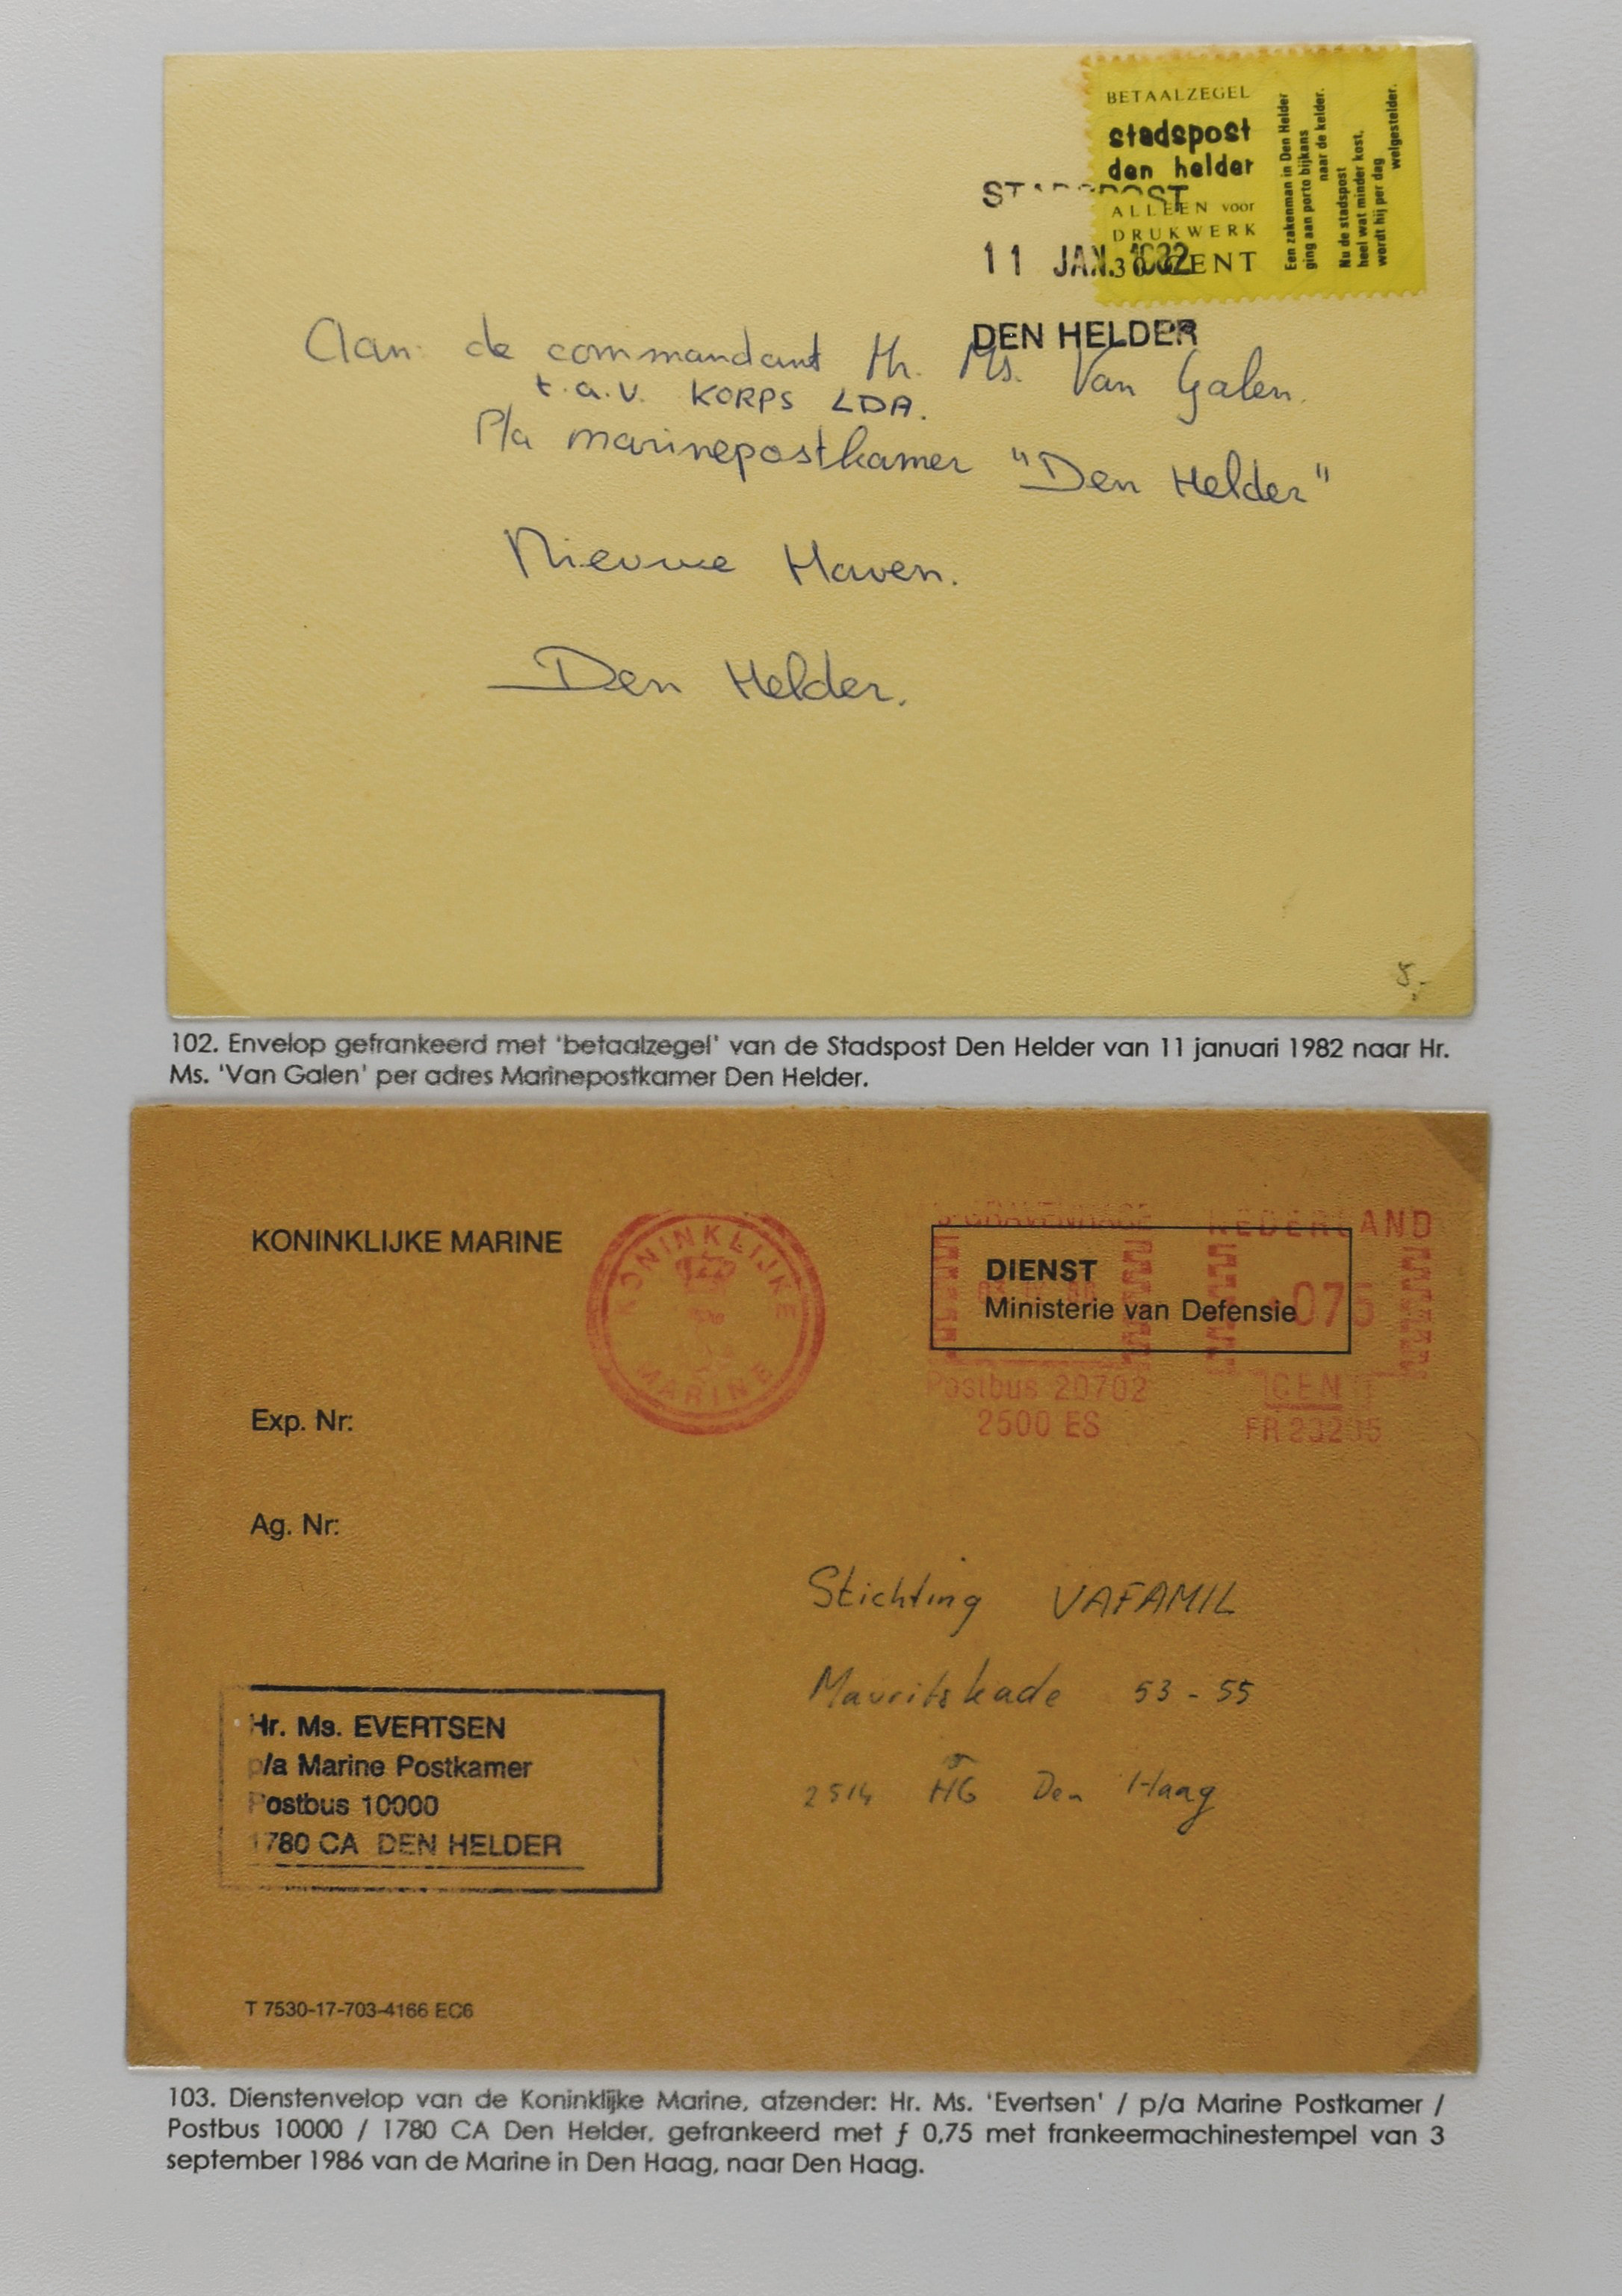 BETAALZEGEL
stadspost
den helder
ALLEEN voor
DRUKWERK
30 CENT
Een zakenman in Den Helder
ging aan porto bijkans
naar de kelder.
Nu de stadspost
heel wat minder kost,
wordt hij per dag
welgestelder.
STADSPOST
11 JAN. 1982
DEN HELDER
Aan: de commandant Hr. Ms. Van Galen.
t.a.v. KORPS LDA.
P/a marinepostkamer "Den Helder"
Nieuwe Haven.
Den Helder.
102. Envelop gefrankeerd met 'betaalzegel' van de Stadspost Den Helder van 11 januari 1982 naar Hr.
Ms. 'Van Galen' per adres Marinepostkamer Den Helder.
KONINKLIJKE MARINE
KONINKLIJKE
MARINE
'S-GRAVENHAGE
NEDERLAND
DIENST
Ministerie van Defensie
075
Postbus 20702
2500 ES
CEN
FR
Exp. Nr:
Ag. Nr:
Stichting VAFAMIL
Mauritskade 53 - 55
2514 HG Den Haag
Hr. Ms. EVERTSEN
p/a Marine Postkamer
Postbus 10000
1780 CA DEN HELDER
T 7530-17-703-4166 EC6
103. Dienstenvelop van de Koninklijke Marine, afzender: Hr. Ms. 'Evertsen' / p/a Marine Postkamer /
Postbus 10000 / 1780 CA Den Helder, gefrankeerd met ƒ 0,75 met frankeermachinestempel van 3
september 1986 van de Marine in Den Haag, naar Den Haag.